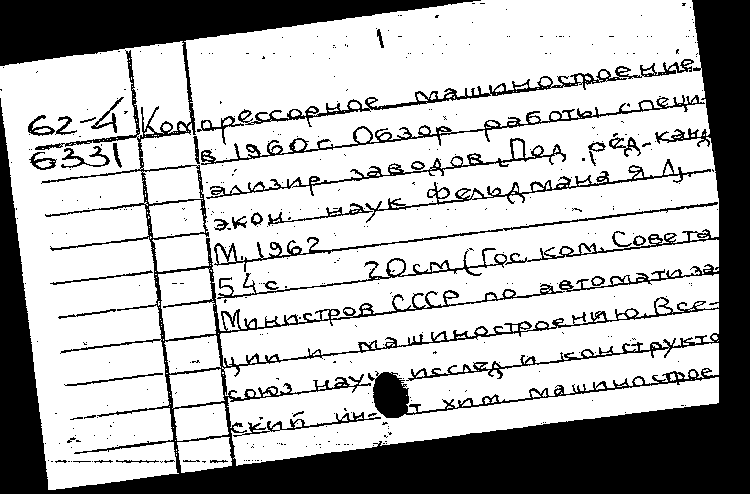 1
62-4 Компрессорное машиностроение
6331 в 1960 г. Обзор работы специ-
ализир. заводов. Под ред. канд.
экон. наук Фельдмана Я. Л.
М., 1962.
54 с. 20 см. (Гос. ком. Совета
Министров СССР по автоматиза-
ции и машиностроению. Все-
союз науч исслед и конструкто
ский ин-т хим. машинострое